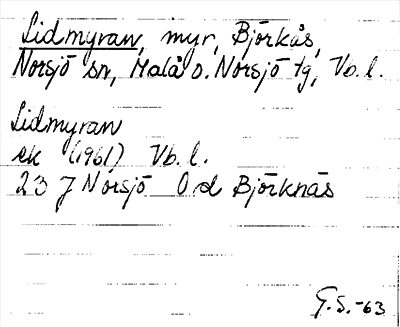 Lidmyran, myr, Björkås,
Norsjö sn, Malå o. Norsjö tg, Vb. l.
Lidmyran
ek (1961) Vb. l.
23 J Norsjö O d Björknäs
G.S.-63